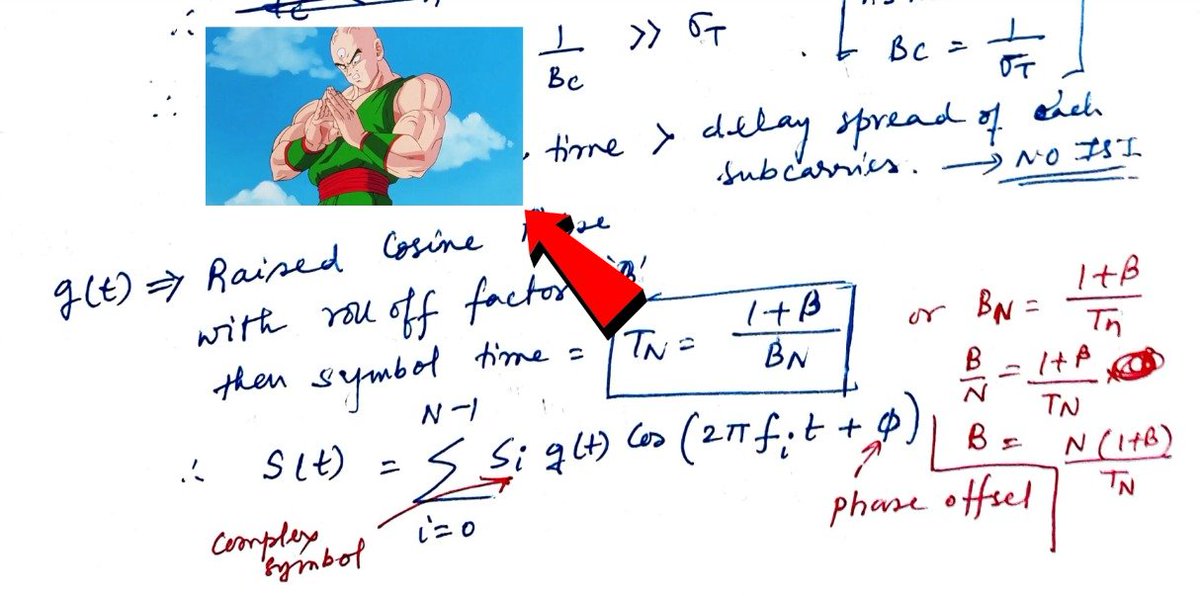 ∴
∴ 1/Bc >> σT
Bc = 1/σT
∴ time > delay spread of each
subcarries. → NO ISI
g(t) ⇒ Raised Cosine
with roll off factor 'β'
then symbol time = TN = (1+β)/BN
or BN = (1+β)/Tn
B/N = (1+β)/TN ×
∴ S(t) = Σ_{i=0}^{N-1} Si g(t) Cos (2π fi t + φ)
B = N(1+β)/TN
complex
symbol
phase offset